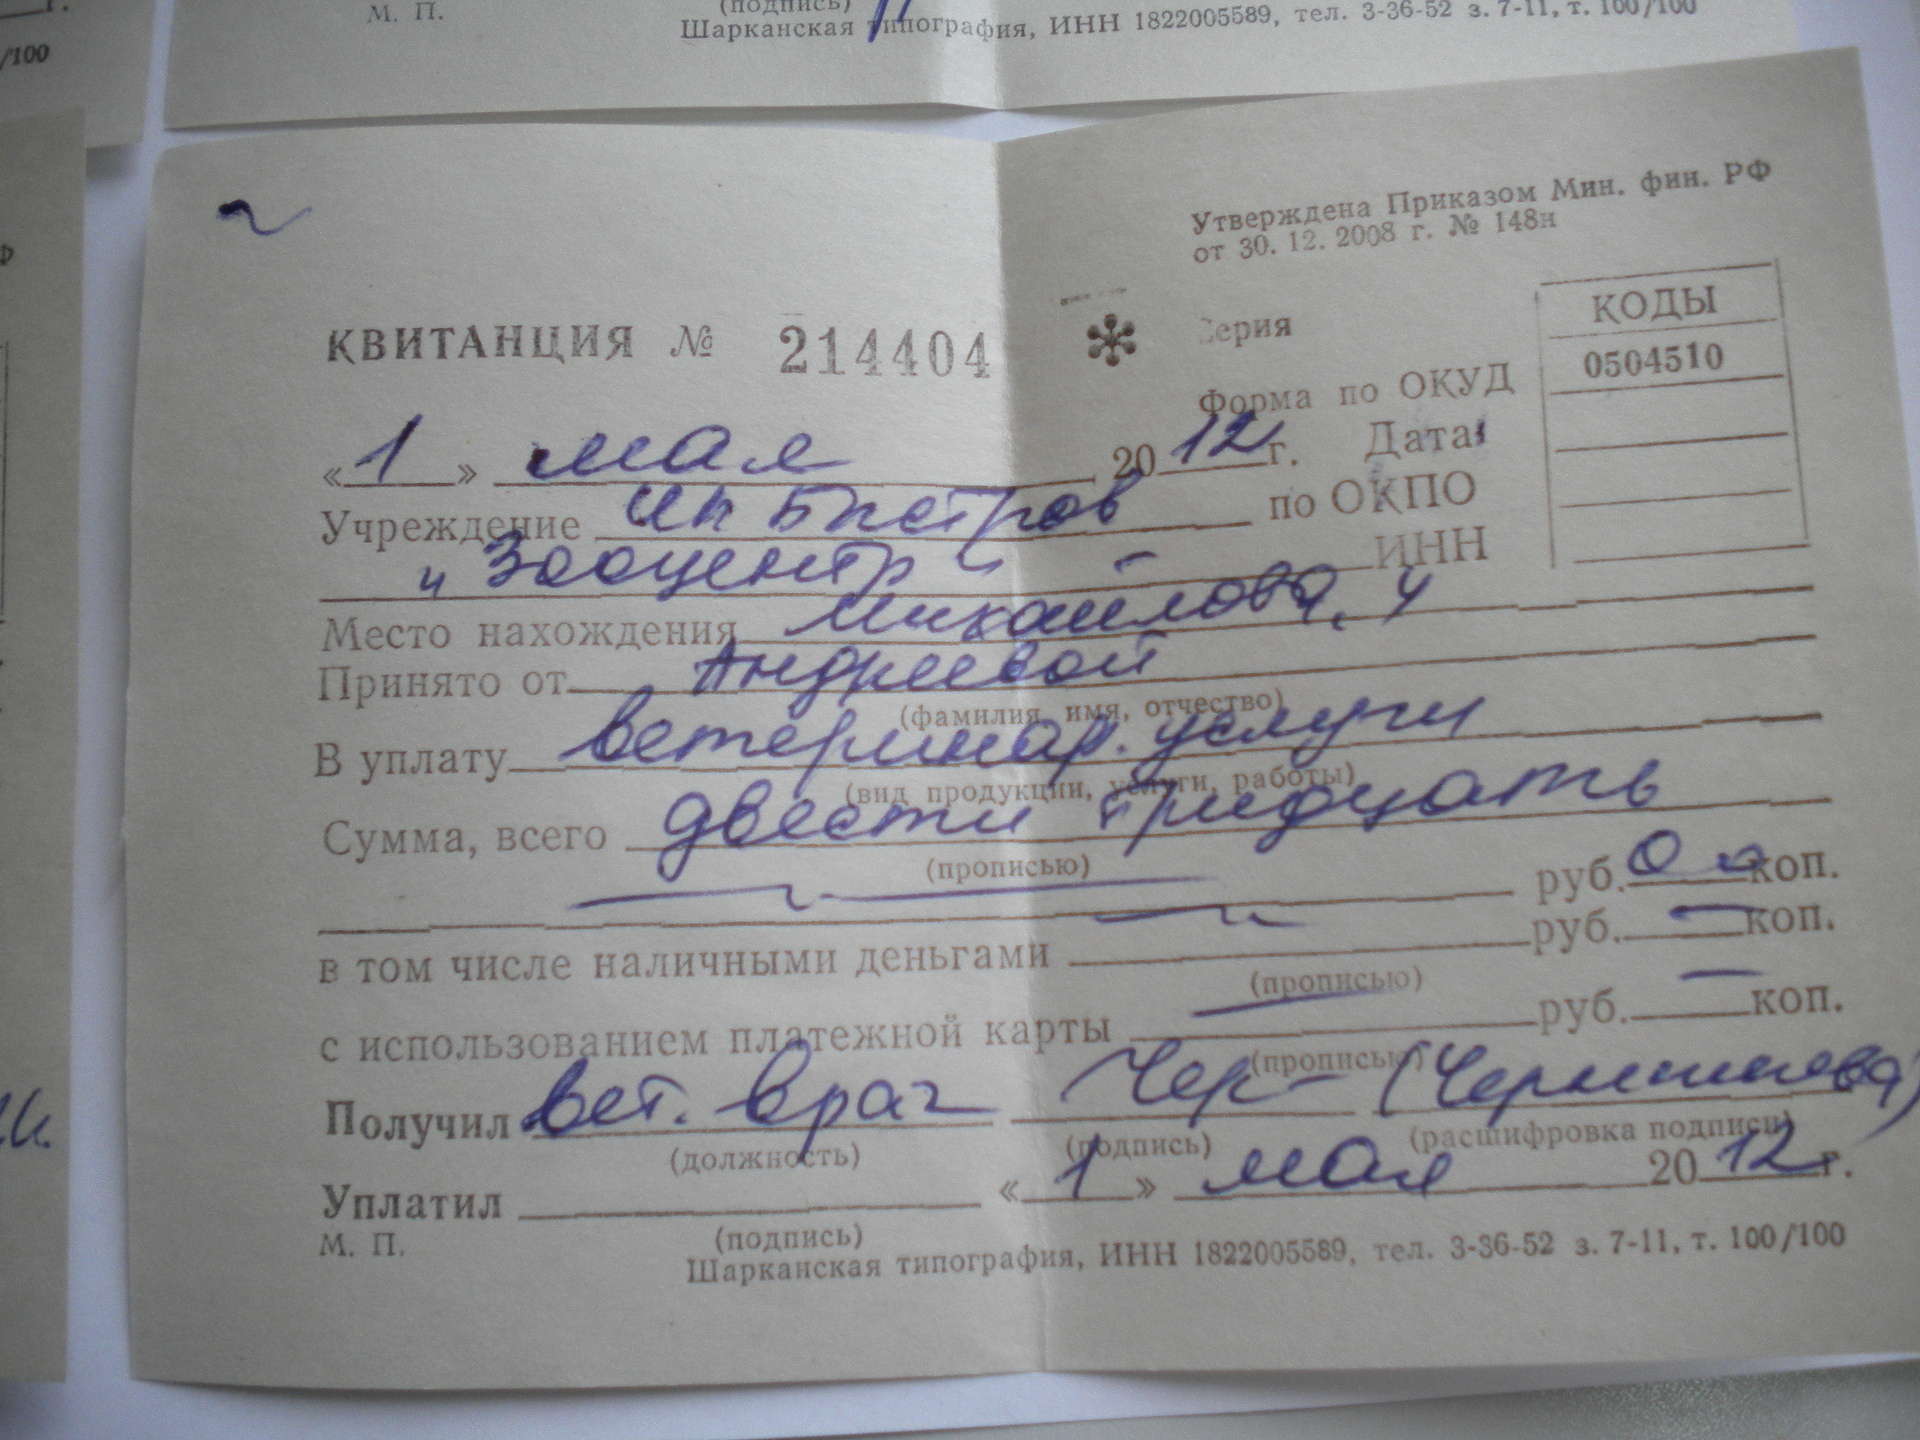 г.
/100
М. П.
(подпись)
Шарканская типография, ИНН 1822005589, тел. 3-36-52 з. 7-11, т. 100/100
Утверждена Приказом Мин. фин. РФ
от 30. 12. 2008 г. № 148н
КВИТАНЦИЯ № 214404
Серия
КОДЫ
Форма по ОКУД 0504510
«1» мая 2012 г. Дата
Учреждение ип Быстров по ОКПО
"Зооцентр" ИНН
Место нахождения Михайлова, 4
Принято от Андреевой
(фамилия, имя, отчество)
В уплату ветеринар. услуги
(вид продукции, услуги, работы)
Сумма, всего двести тридцать
(прописью)
руб. 00 коп.
в том числе наличными деньгами руб. — коп.
(прописью)
с использованием платежной карты руб. — коп.
(прописью)
Получил вет. врач Чер
(должность) (подпись) (расшифровка подписи)
Уплатил «1» мая 2012 г.
М. П. (подпись)
Шарканская типография, ИНН 1822005589, тел. 3-36-52 з. 7-11, т. 100/100